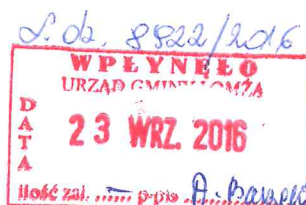 L.dz. 8822/2016
WPŁYNĘŁO
URZĄD GMINY ŁOMŻA
DATA
23 WRZ. 2016
ilość zał. — p-pis A.